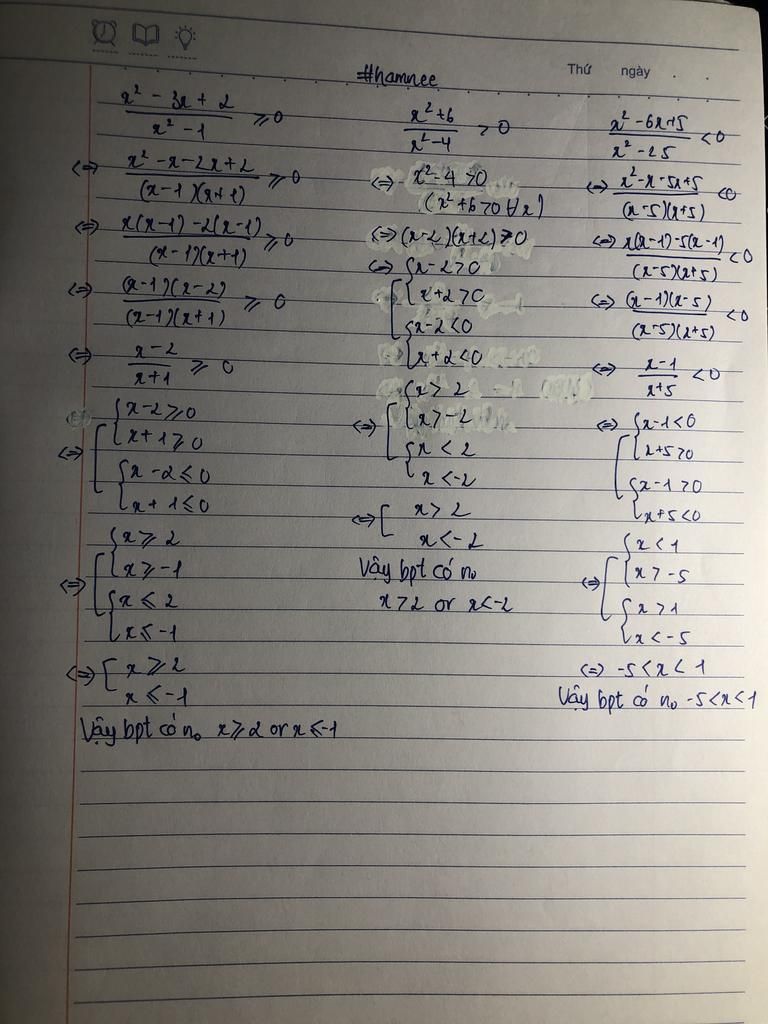 #hamnee
Thứ ngày . .
x² - 3x + 2 / x² - 1 ⩾ 0
<=> x² - x - 2x + 2 / (x-1)(x+1) ⩾ 0
<=> x(x-1) - 2(x-1) / (x-1)(x+1) ⩾ 0
<=> (x-1)(x-2) / (x-1)(x+1) ⩾ 0
<=> x-2 / x+1 ⩾ 0
<=> [ { x-2 ⩾ 0
x+1 ⩾ 0
{ x-2 ⩽ 0
x+1 ⩽ 0
<=> [ { x ⩾ 2
x ⩾ -1
{ x ⩽ 2
x ⩽ -1
<=> [ x ⩾ 2
x ⩽ -1
Vậy bpt có n₀ x ⩾ 2 or x ⩽ -1
x² + 6 / x² - 4 > 0
<=> x² - 4 > 0
(x² + 6 > 0 ∀x)
<=> (x-2)(x+2) > 0
<=> [ { x-2 > 0
x+2 > 0
{ x-2 < 0
x+2 < 0
<=> [ { x > 2
x > -2
{ x < 2
x < -2
<=> [ x > 2
x < -2
Vậy bpt có n₀
x > 2 or x < -2
x² - 6x + 5 / x² - 25 < 0
<=> x² - x - 5x + 5 / (x-5)(x+5) < 0
<=> x(x-1) - 5(x-1) / (x-5)(x+5) < 0
<=> (x-1)(x-5) / (x-5)(x+5) < 0
<=> x-1 / x+5 < 0
<=> [ { x-1 < 0
x+5 > 0
{ x-1 > 0
x+5 < 0
<=> [ { x < 1
x > -5
{ x > 1
x < -5
<=> -5 < x < 1
Vậy bpt có n₀ -5 < x < 1